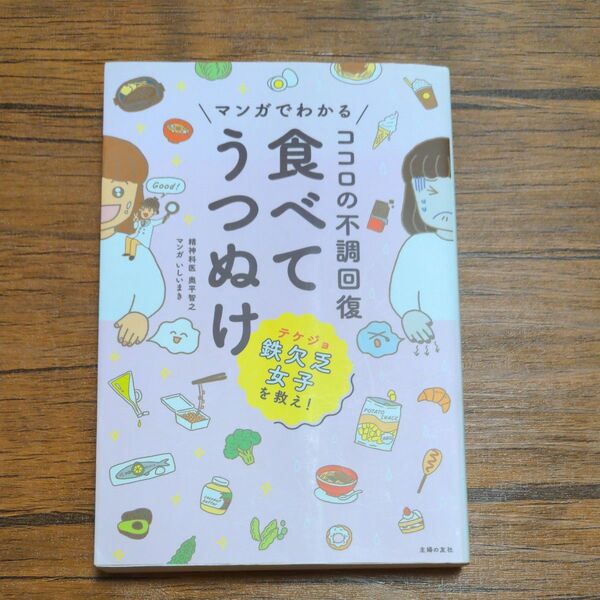 マンガでわかる
ココロの不調回復
食べて
うつぬけ
精神科医 奥平智之
マンガ いしいまき
Good!
テケジョ
鉄欠乏
女子
を救え!
POTATO SNACK
主婦の友社